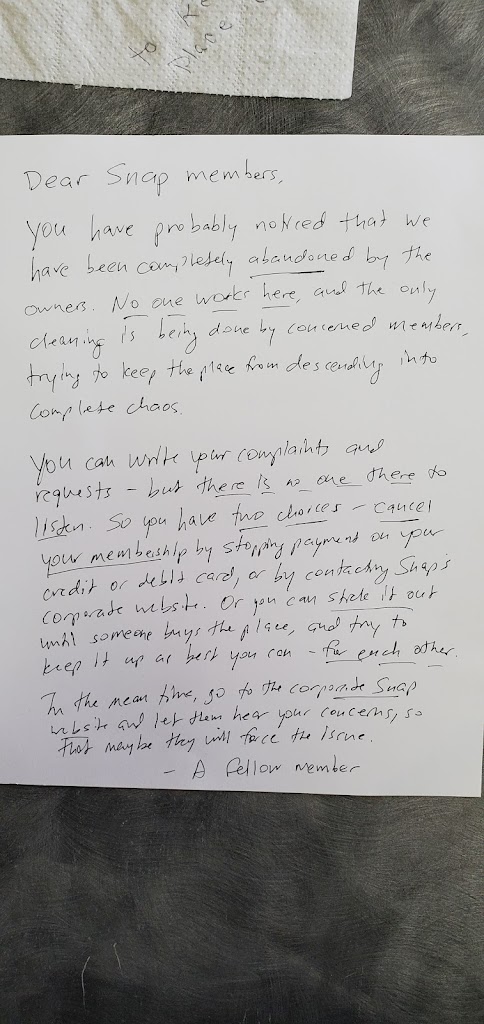 to
place
Dear Snap members,
You have probably noticed that we
have been completely abandoned by the
owners. No one works here, and the only
cleaning is being done by concerned members,
trying to keep the place from descending into
complete chaos.
You can write your complaints and
requests - but there is no one there to
listen. So you have two choices - cancel
your membership by stopping payment on your
credit or debit card, or by contacting Snap's
corporate website. Or you can stick it out
until someone buys the place, and try to
keep it up as best you can - for each other.
In the mean time, go to the corporate Snap
website and let them hear your concerns, so
that maybe they will force the issue.
- A fellow member